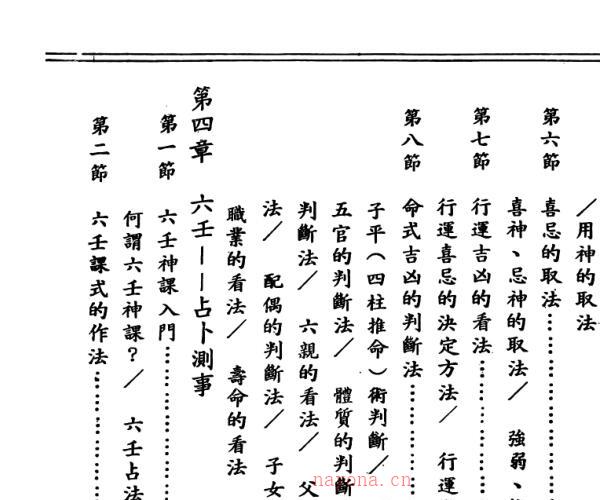 ／用神的取法
第六節 喜忌的取法………………
喜神、忌神的取法／ 強弱、
第七節 行運吉凶的看法………………
行運喜忌的決定方法／ 行運
第八節 命式吉凶的判斷法………………
子平（四柱推命）術判斷／
五官的判斷法／ 體質的判斷
判斷法／ 六親的看法／ 父
法／ 配偶的判斷法／ 子女
職業的看法／ 壽命的看法
第四章 六壬——占卜測事
第一節 六壬神課入門………………
何謂六壬神課？／ 六壬占法
第二節 六壬課式的作法………………
nayona.cn